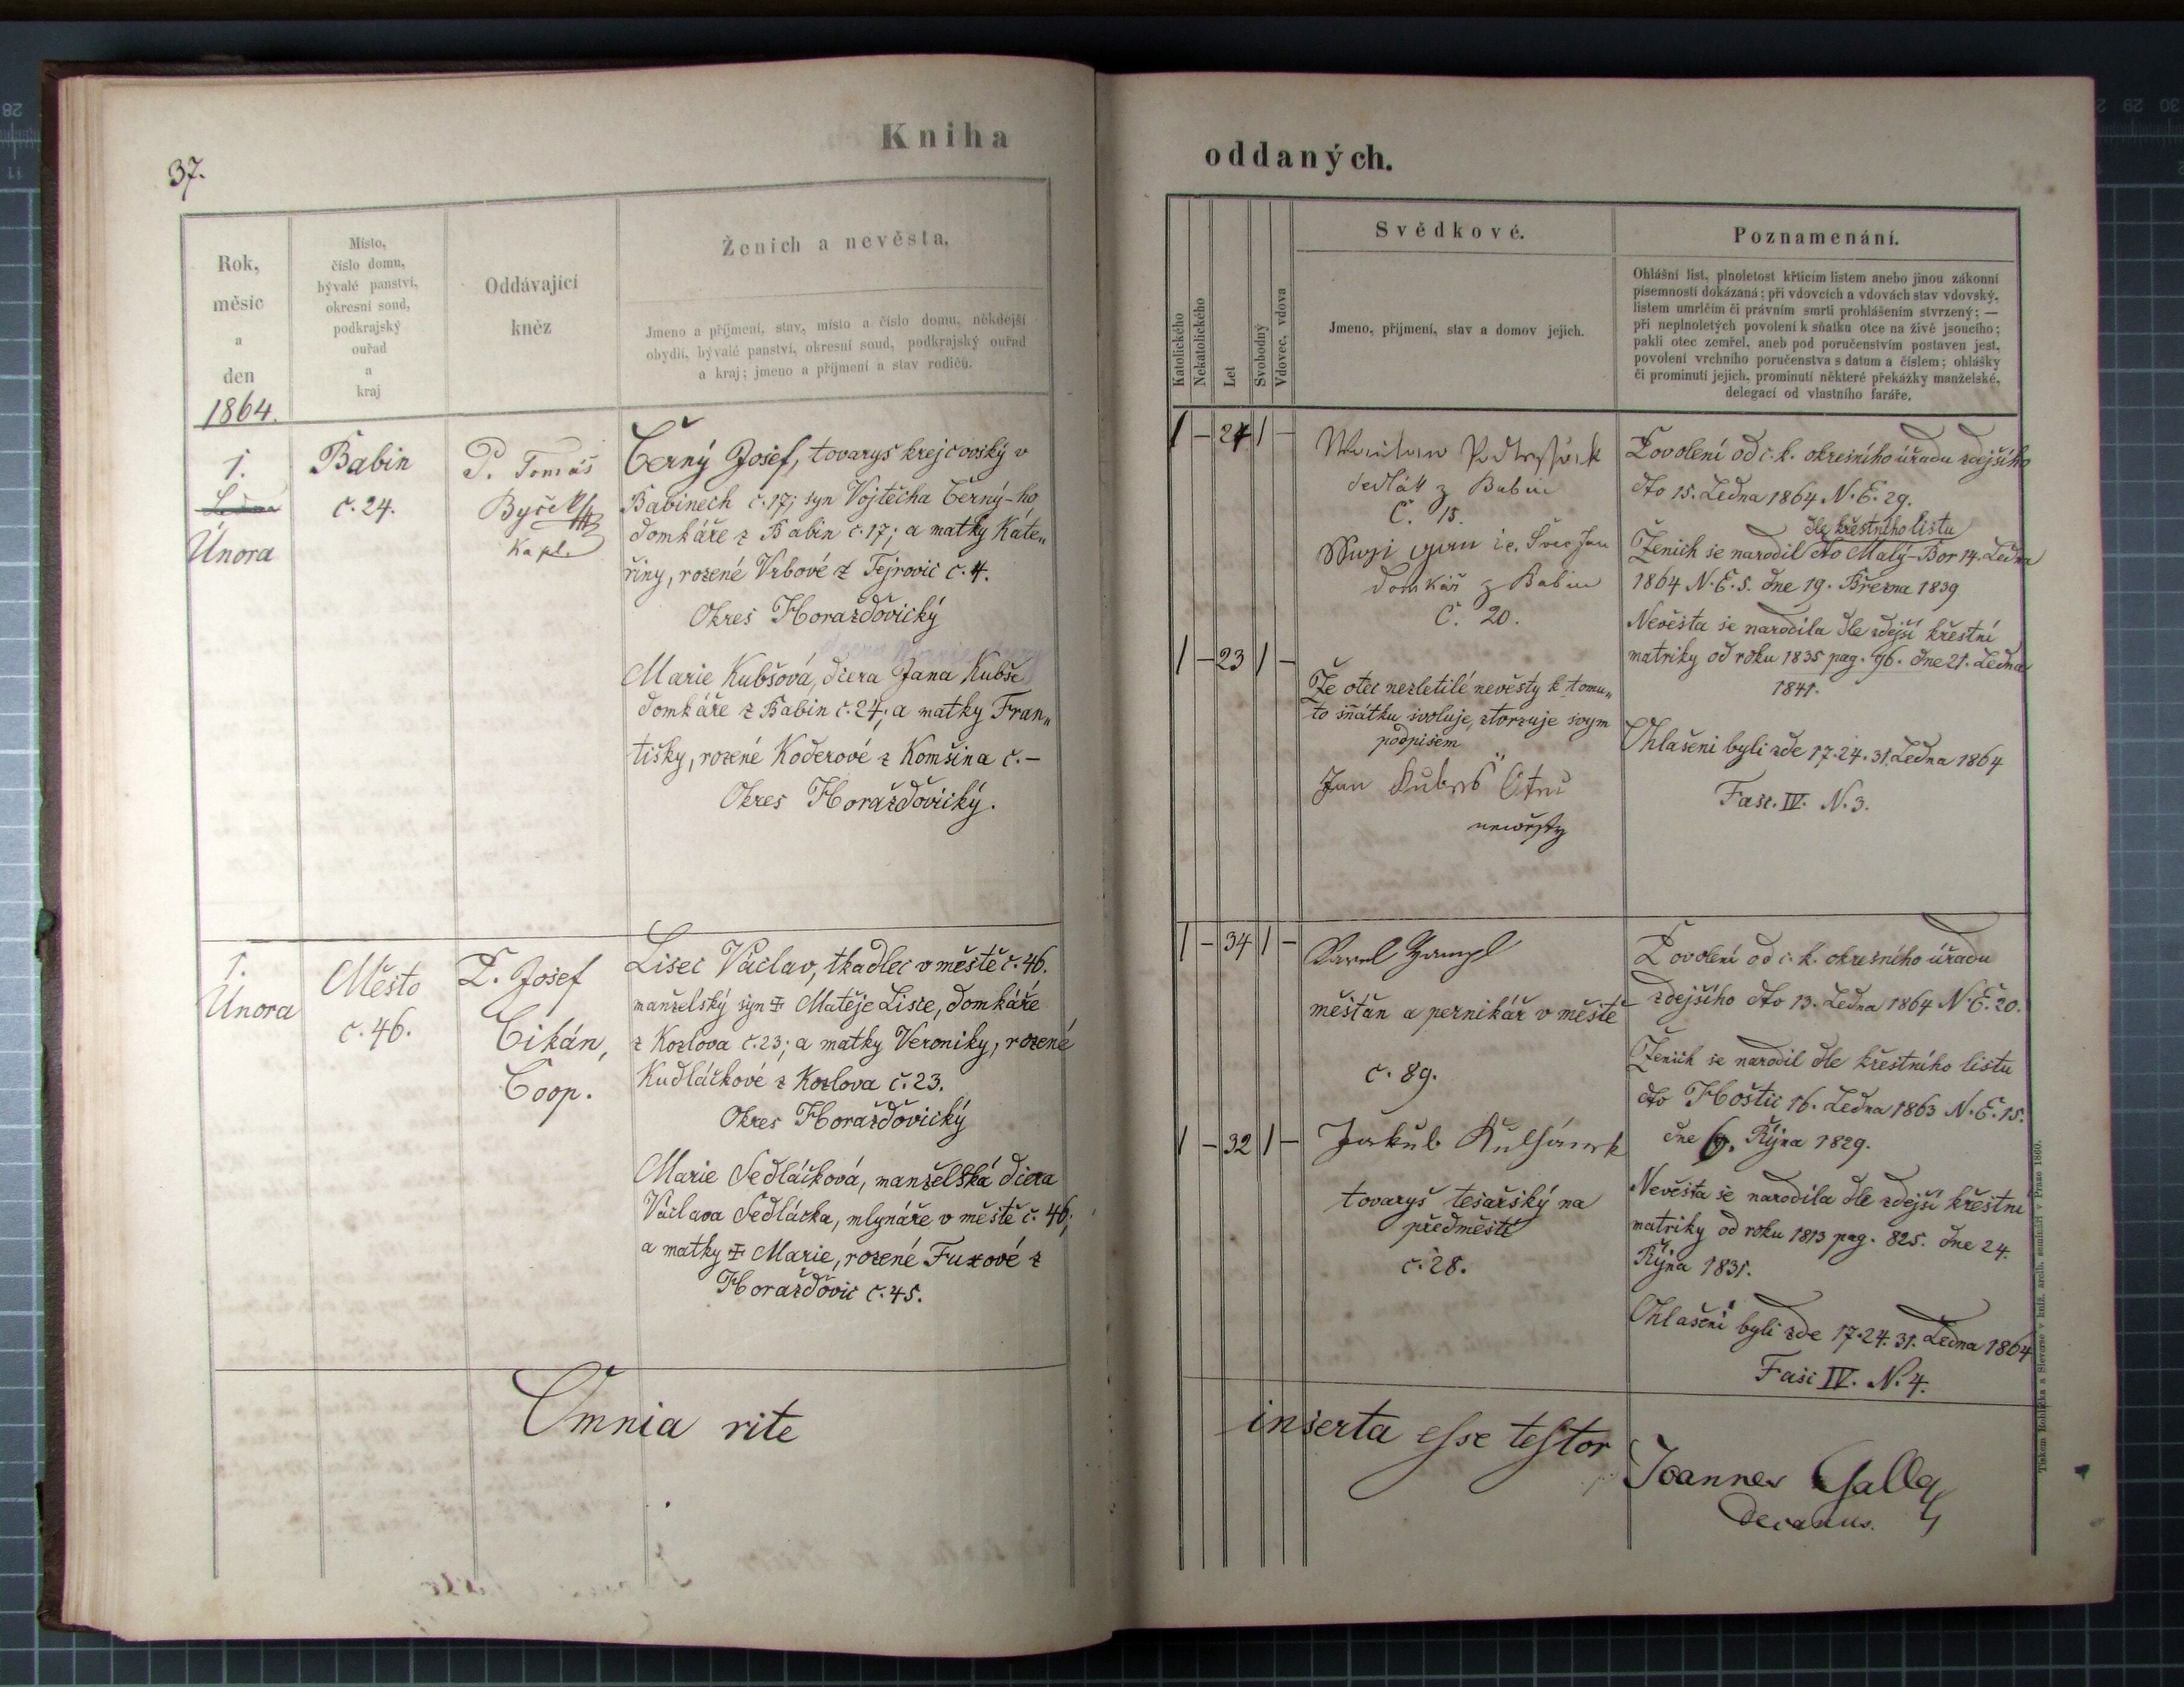 Kniha
37.
Rok,
měsíc
a
den
1864.
Místo,
číslo domu,
bývalé panství,
okresní soud,
podkrajský
ouřad
a
kraj
Oddávající
kněz
Ženich a nevěsta,
Jmeno a příjmení, stav, místo a číslo domu, někdejší
obydlí, bývalé panství, okresní soud, podkrajský ouřad
a kraj; jmeno a příjmení a stav rodičů.
1.
Ledna
Února
Babin
č. 24.
P. Tomáš
kapl.
Černý Josef, tovaryš krejčovský v
Babinech č. 17; syn Vojtěcha Černý-ho
domkáře z Babin č. 17; a matky Kate„
řiny, rozené Vrbové z Tejrovic č. 4.
Okres Horažďovický
Marie Kubšová, dcera Jana Kubše
domkáře z Babin č. 24; a matky Fran„
tišky, rozené Koderové z Komšina č. –
Okres Horažďovický.
1.
Února
Město
č. 46.
P. Josef
Cikán,
Coop.
Lisec Václav, tkadlec v městě č. 46.
manželský syn Matěje Lisce, domkáře
z Kozlova č. 23; a matky Veroniky, rozené
Kudláčkové z Kozlova č. 23.
Okres Horažďovický
Marie Sedláčková, manželská dcera
Václava Sedláčka, mlynáře v městě č. 46;
a matky Marie, rozené Fuxové z
Horažďovic č. 45.
Omnia rite
oddaných.
Katolického
Nekatolického
Let
Svobodný
Vdovec, vdova
Svědkové.
Jmeno, příjmení, stav a domov jejich.
Poznamenání.
Ohlášní list, plnoletost křticím listem anebo jinou zákonní
písemností dokázaná; při vdovcích a vdovách stav vdovský,
listem umrlčím či právním smrti prohlášením stvrzený; —
při neplnoletých povolení k sňatku otce na živě jsoucího;
pakli otec zemřel, aneb pod poručenstvím postaven jest,
povolení vrchního poručenstva s datum a číslem; ohlášky
či prominutí jejich, prominutí některé překážky manželské,
delegací od vlastního faráře.
1 – 24 1 –
sedlák z Babin
Č. 15.
i.e. Švec Jan
domkář z Babin
Č. 20.
1 – 23 1 –
Že otec nezletilé nevěsty k tomu„
to sňátku svoluje, stvrzuje svym
podpisem
Jan Kubsch Otec
newěsty
Povolení od c. k. okresního úřadu zdejšího
dto 15. Ledna 1864 N. E. 29.
dle křestního listu
Ženich se narodil dto Malý-Bor 14. Ledna
1864 N. E. 5. dne 19. Března 1839
Nevěsta se narodila dle zdejší křestní
matriky od roku 1835 pag. 96. dne 21. Ledna
1841.
Ohlašeni byli zde 17. 24. 31. Ledna 1864
Fasc. IV. N. 3.
1 – 34 1 –
Karel
měšťan a pernikář v městě
č. 89.
1 – 32 1 –
Jakub
tovaryš tesařský na
předměstí
č. 28.
Povolení od c. k. okresního úřadu
zdejšího dto 13. Ledna 1864 N. E. 20.
Ženich se narodil dle křestního listu
dto Hoštic 16. Ledna 1863 N. E. 15.
dne Října 1829.
Nevěsta se narodila dle zdejší křestní
matriky od roku 1813 pag. 825. dne 24.
Října 1831.
Ohlašeni byli zde 17. 24. 31. Ledna 1864
Fasc IV. N. 4.
inserta esse testor
Joannes Galla
Decanus.
Tiskem Rohlíčka a Sieverse v kníž. arcib. semináři v Praze 1860.